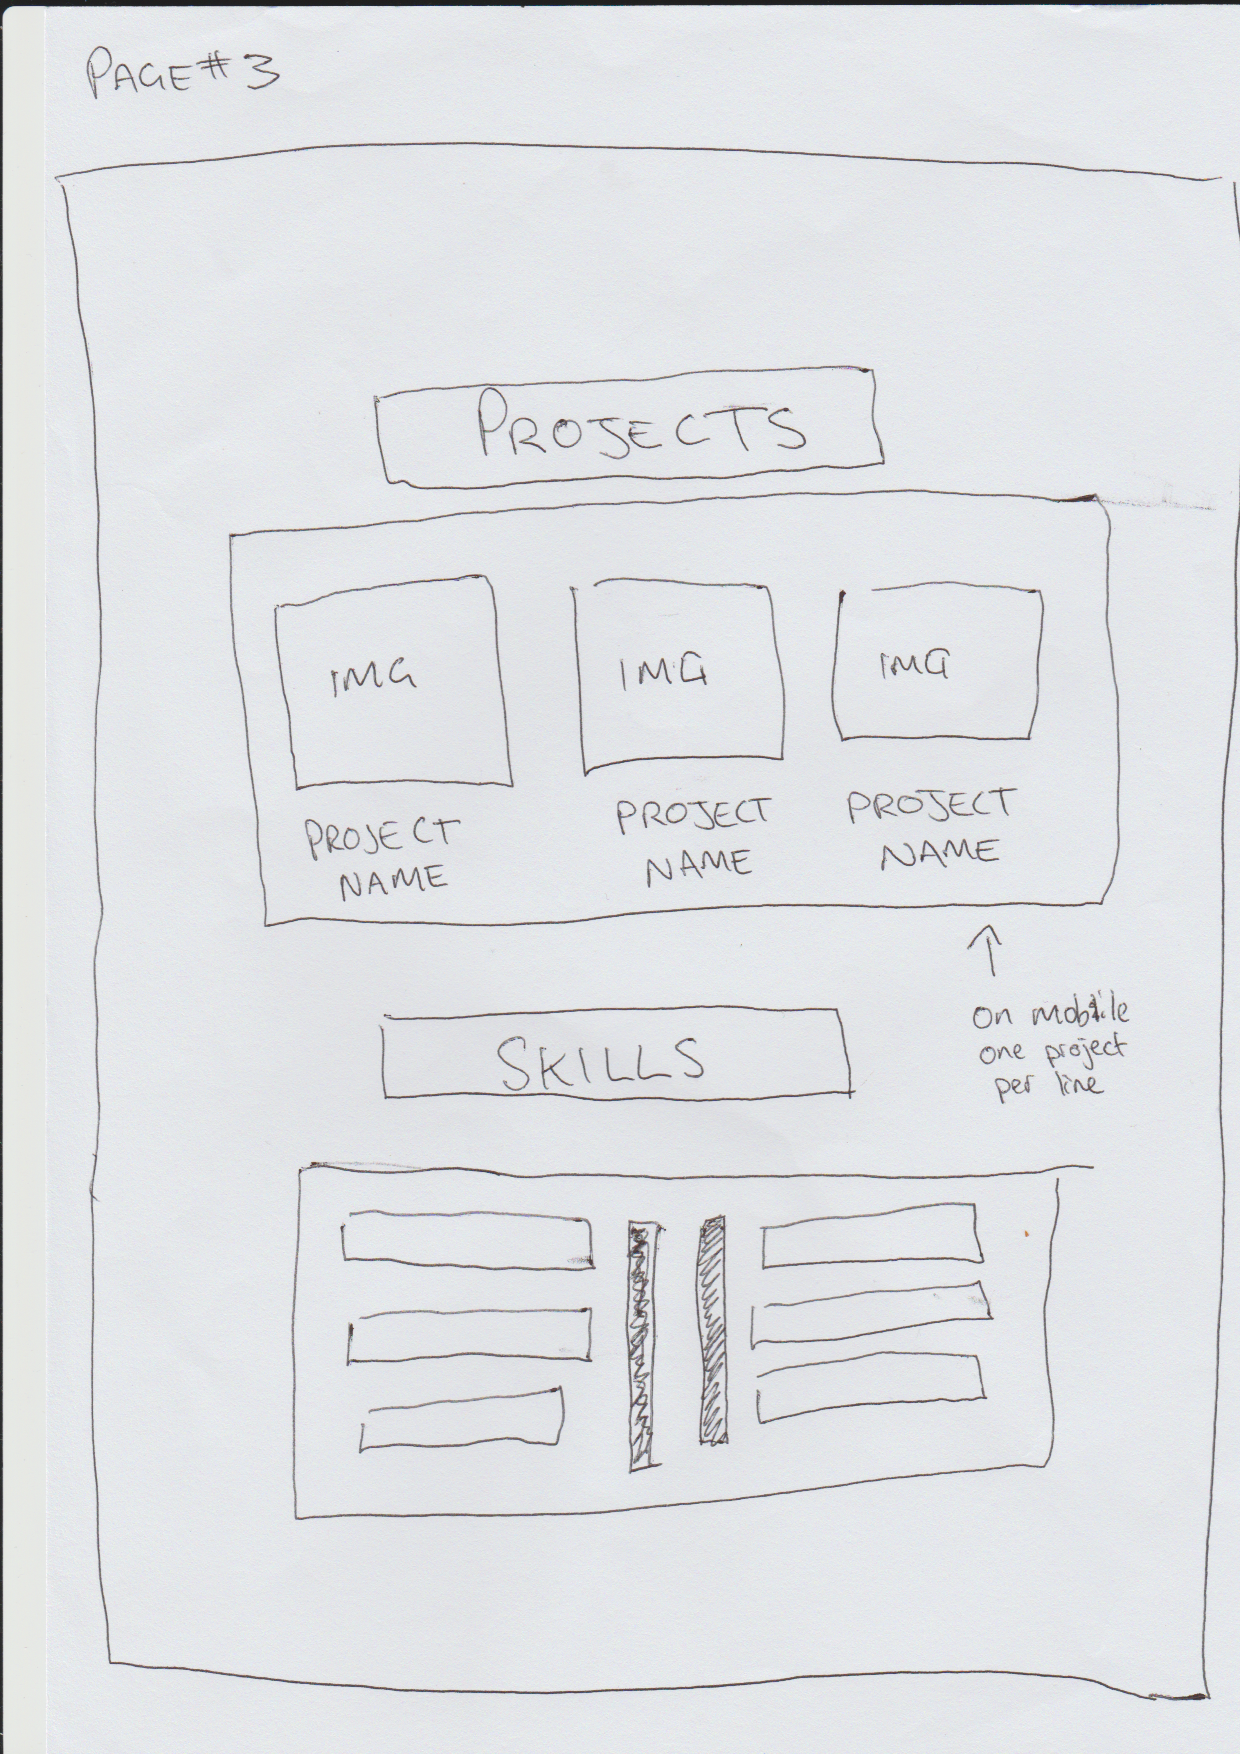 PAGE#3
PROJECTS
IMG
IMG
IMG
PROJECT
NAME
PROJECT
NAME
PROJECT
NAME
On mobile
one project
per line
SKILLS